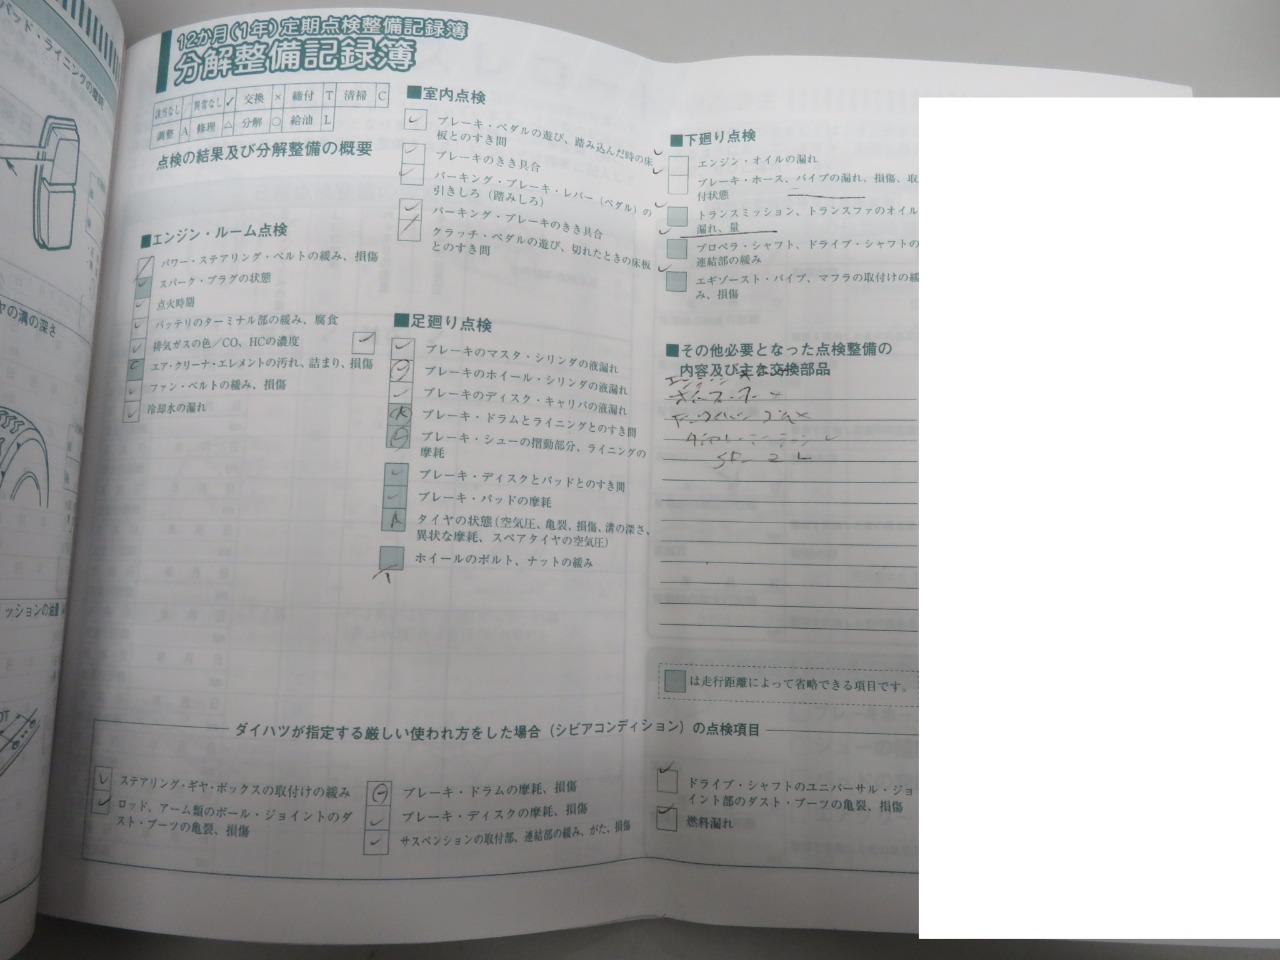 パッド・ライニングの摩耗
ヤの溝の深さ
ッションの油量
12か月(1年)定期点検整備記録簿
分解整備記録簿
該当なし / 異常なし ✓ 交換 × 締付 T 清掃 C
調整 A 修理 △ 分解 ○ 給油 L
点検の結果及び分解整備の概要
■エンジン・ルーム点検
パワー・ステアリング・ベルトの緩み、損傷
スパーク・プラグの状態
点火時期
バッテリのターミナル部の緩み、腐食
排気ガスの色/CO、HCの濃度
エア・クリーナ・エレメントの汚れ、詰まり、損傷
ファン・ベルトの緩み、損傷
冷却水の漏れ
■室内点検
ブレーキ・ペダルの遊び、踏み込んだ時の床
板とのすき間
ブレーキのきき具合
パーキング・ブレーキ・レバー(ペダル)の
引きしろ(踏みしろ)
パーキング・ブレーキのきき具合
クラッチ・ペダルの遊び、切れたときの床板
とのすき間
■足廻り点検
ブレーキのマスタ・シリンダの液漏れ
ブレーキのホイール・シリンダの液漏れ
ブレーキのディスク・キャリパの液漏れ
ブレーキ・ドラムとライニングとのすき間
ブレーキ・シューの摺動部分、ライニングの
摩耗
ブレーキ・ディスクとパッドとのすき間
ブレーキ・パッドの摩耗
タイヤの状態(空気圧、亀裂、損傷、溝の深さ、
異状な摩耗、スペアタイヤの空気圧)
ホイールのボルト、ナットの緩み
■下廻り点検
エンジン・オイルの漏れ
ブレーキ・ホース、パイプの漏れ、損傷、取
付状態
トランスミッション、トランスファのオイル
漏れ、量
プロペラ・シャフト、ドライブ・シャフトの
連結部の緩み
エギゾースト・パイプ、マフラの取付けの緩
み、損傷
■その他必要となった点検整備の
内容及び主な交換部品
は走行距離によって省略できる項目です。
ダイハツが指定する厳しい使われ方をした場合(シビアコンディション)の点検項目
ステアリング・ギヤ・ボックスの取付けの緩み
ロッド、アーム類のボール・ジョイントのダ
スト・ブーツの亀裂、損傷
ブレーキ・ドラムの摩耗、損傷
ブレーキ・ディスクの摩耗、損傷
サスペンションの取付部、連結部の緩み、がた、損傷
ドライブ・シャフトのユニバーサル・ジョ
イント部のダスト・ブーツの亀裂、損傷
燃料漏れ